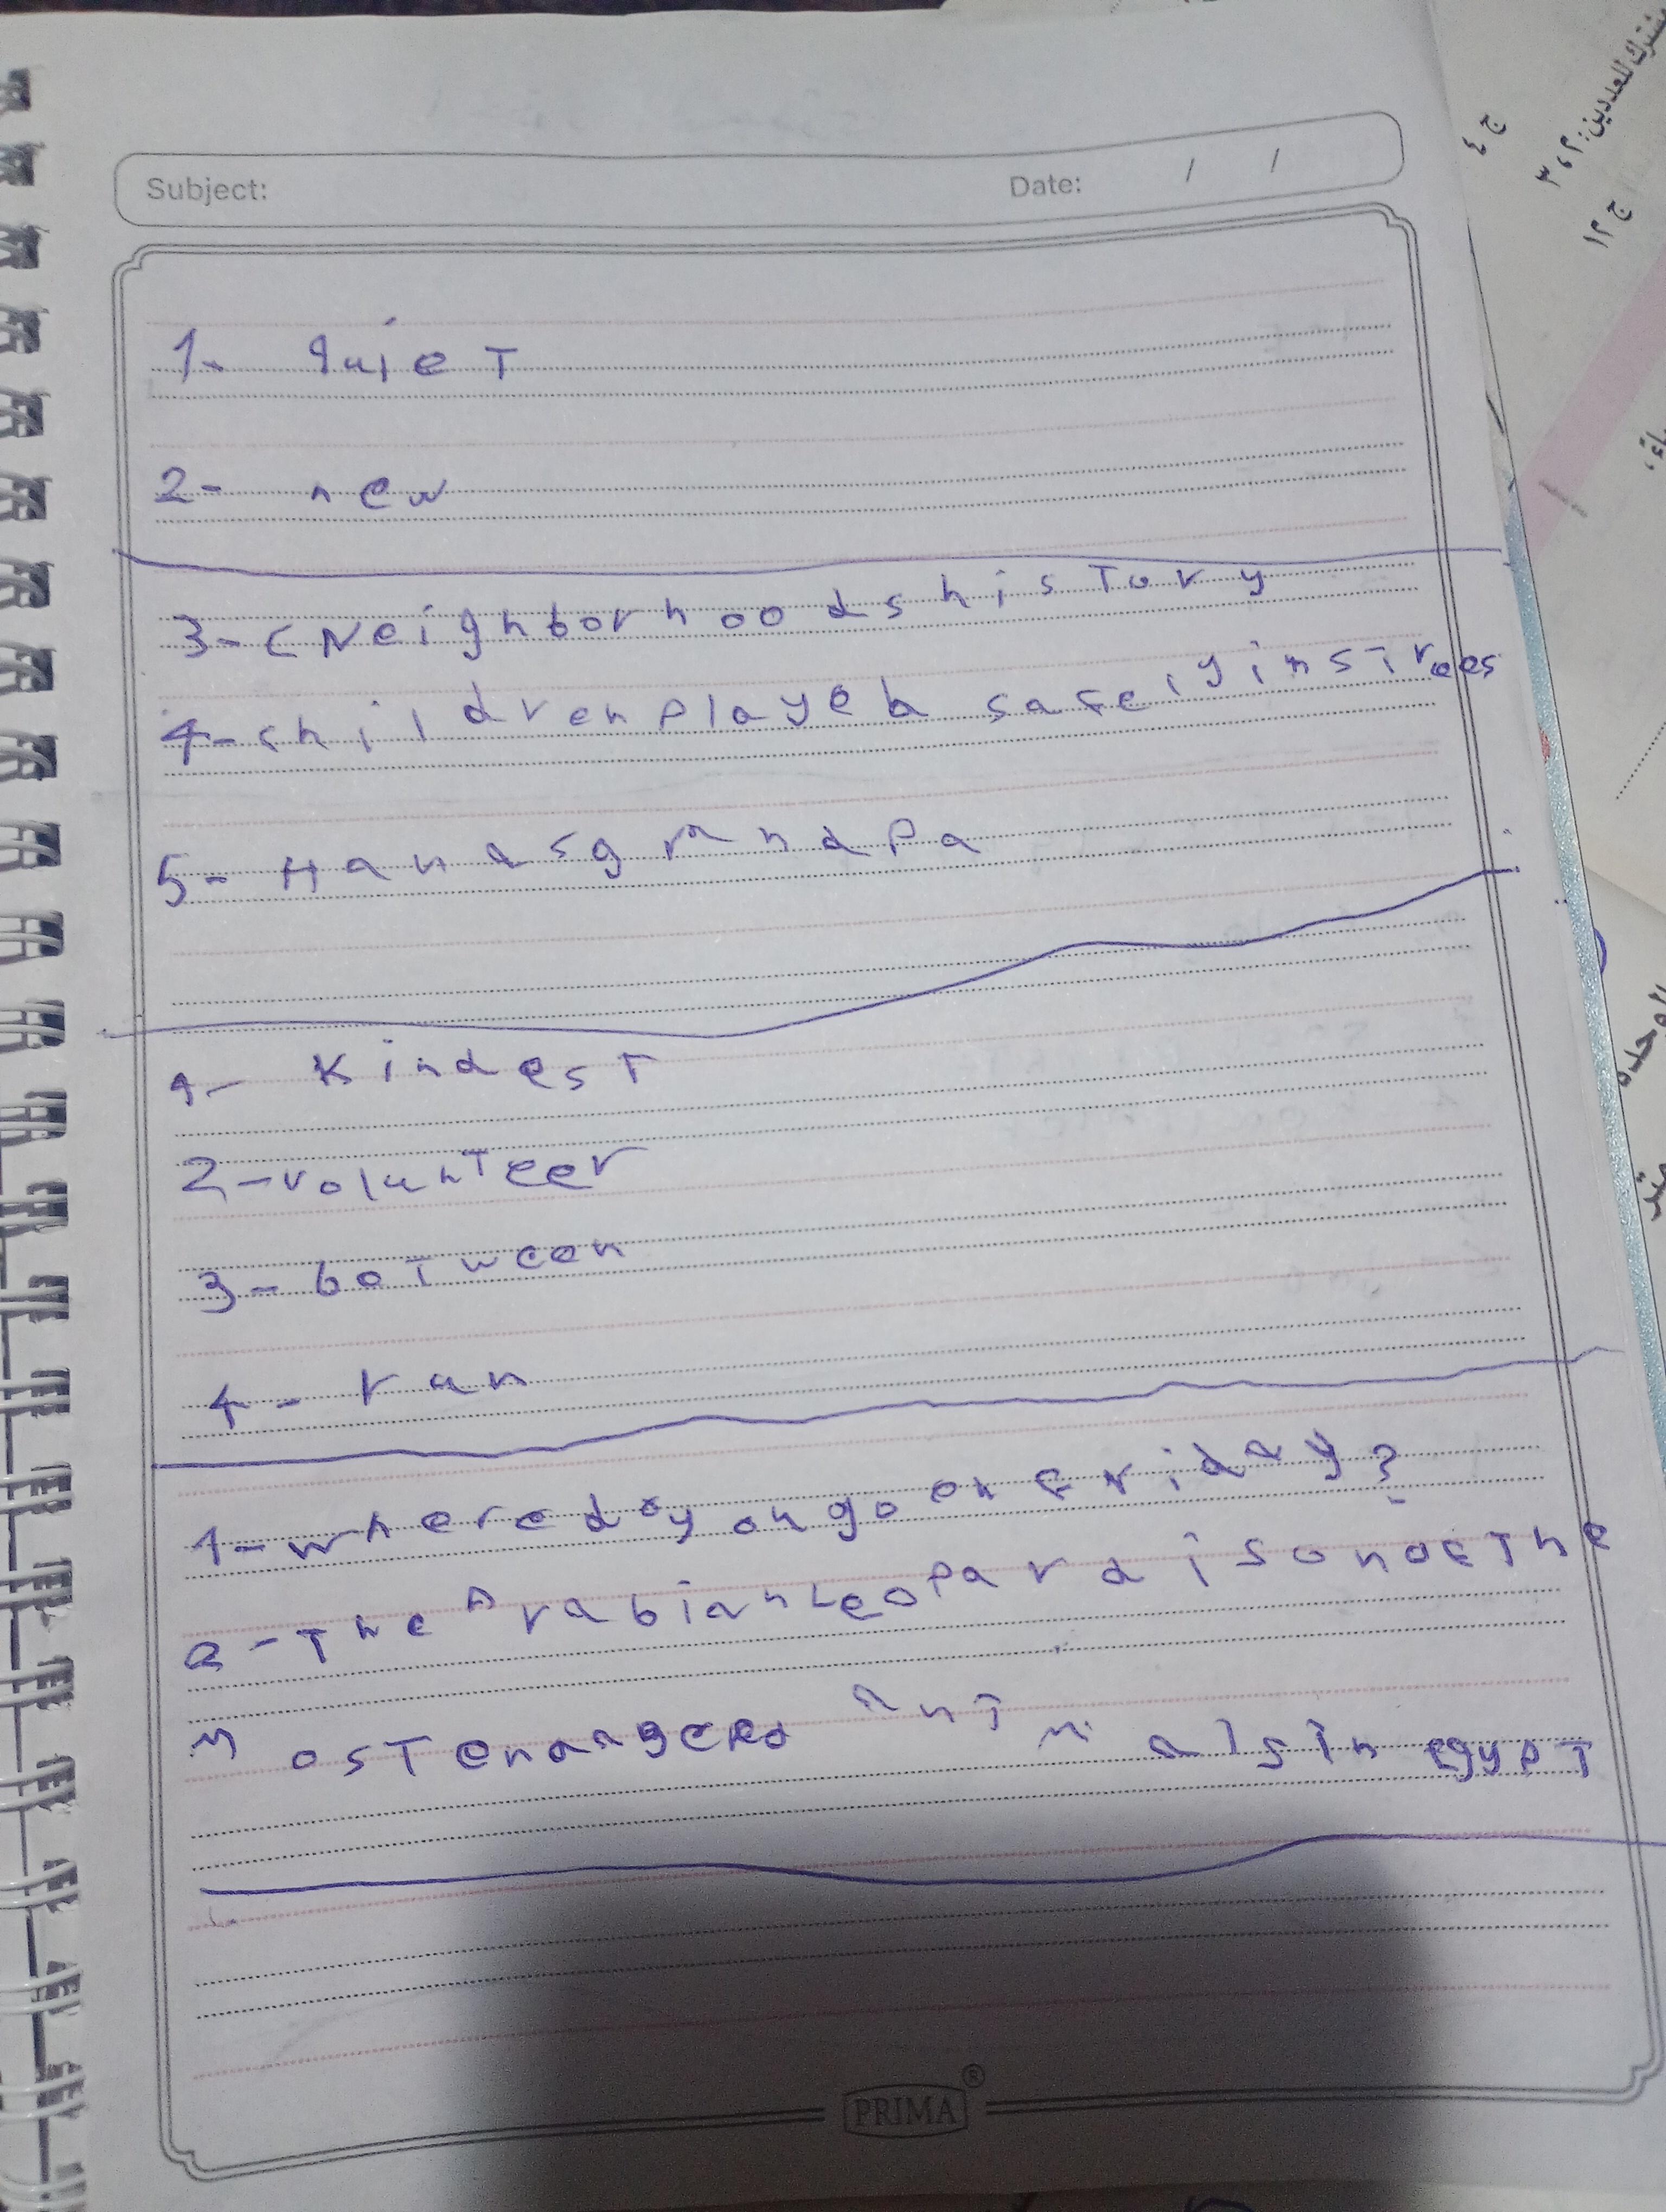 Subject:
Date: / /
1- quieT
2- new
3- ( Neighborhoods hisTory
4- shildren playeb safely in sTrees
5- Hanas grandpa
1- KindesT
2- volunTeer
3- beTween
4- run
1- where do you go on Friday?
2- The Arabian Leopard is one of The
mosT enaangered animals in egypT
PRIMA®
مشترك للعددين: ٢، ٣
ج ٤
ج ١٢